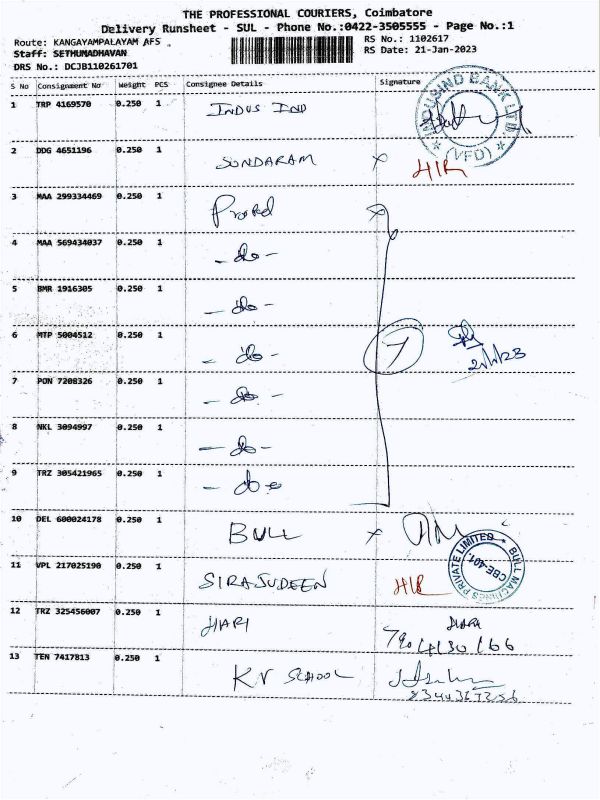 THE PROFESSIONAL COURIERS, Coimbatore
Delivery Runsheet - SUL - Phone No.:0422-3505555 - Page No.:1
Route: KANGAYAMPALAYAM AFS
RS No.: 1102617
Staff: SETHUMADHAVAN
RS Date: 21-Jan-2023
DRS No.: DCJB110261701
S No Consignment No Weight PCS Consignee Details Signature
1 TRP 4169570 0.250 1 INDUS IND
INDUSIND BANK LTD
(VFD)
2 DDG 4651196 0.250 1 SUNDARAM x HIR
3 MAA 299334469 0.250 1
4 MAA 569434037 0.250 1 - do -
5 BMR 1916305 0.250 1 - do -
6 MTP 5004512 0.250 1 - do - 7
7 PON 7208326 0.250 1 - do -
8 NKL 3094997 0.250 1 - do -
9 TRZ 305421965 0.250 1 - do -
10 DEL 600024178 0.250 1 BULL x
BULL MACHINES PRIVATE LIMITED
CBE-401.
11 VPL 217025190 0.250 1 SIRAJUDEEN HIR
12 TRZ 325456007 0.250 1 HARI
13 TEN 7417813 0.250 1 KV SCHOOL